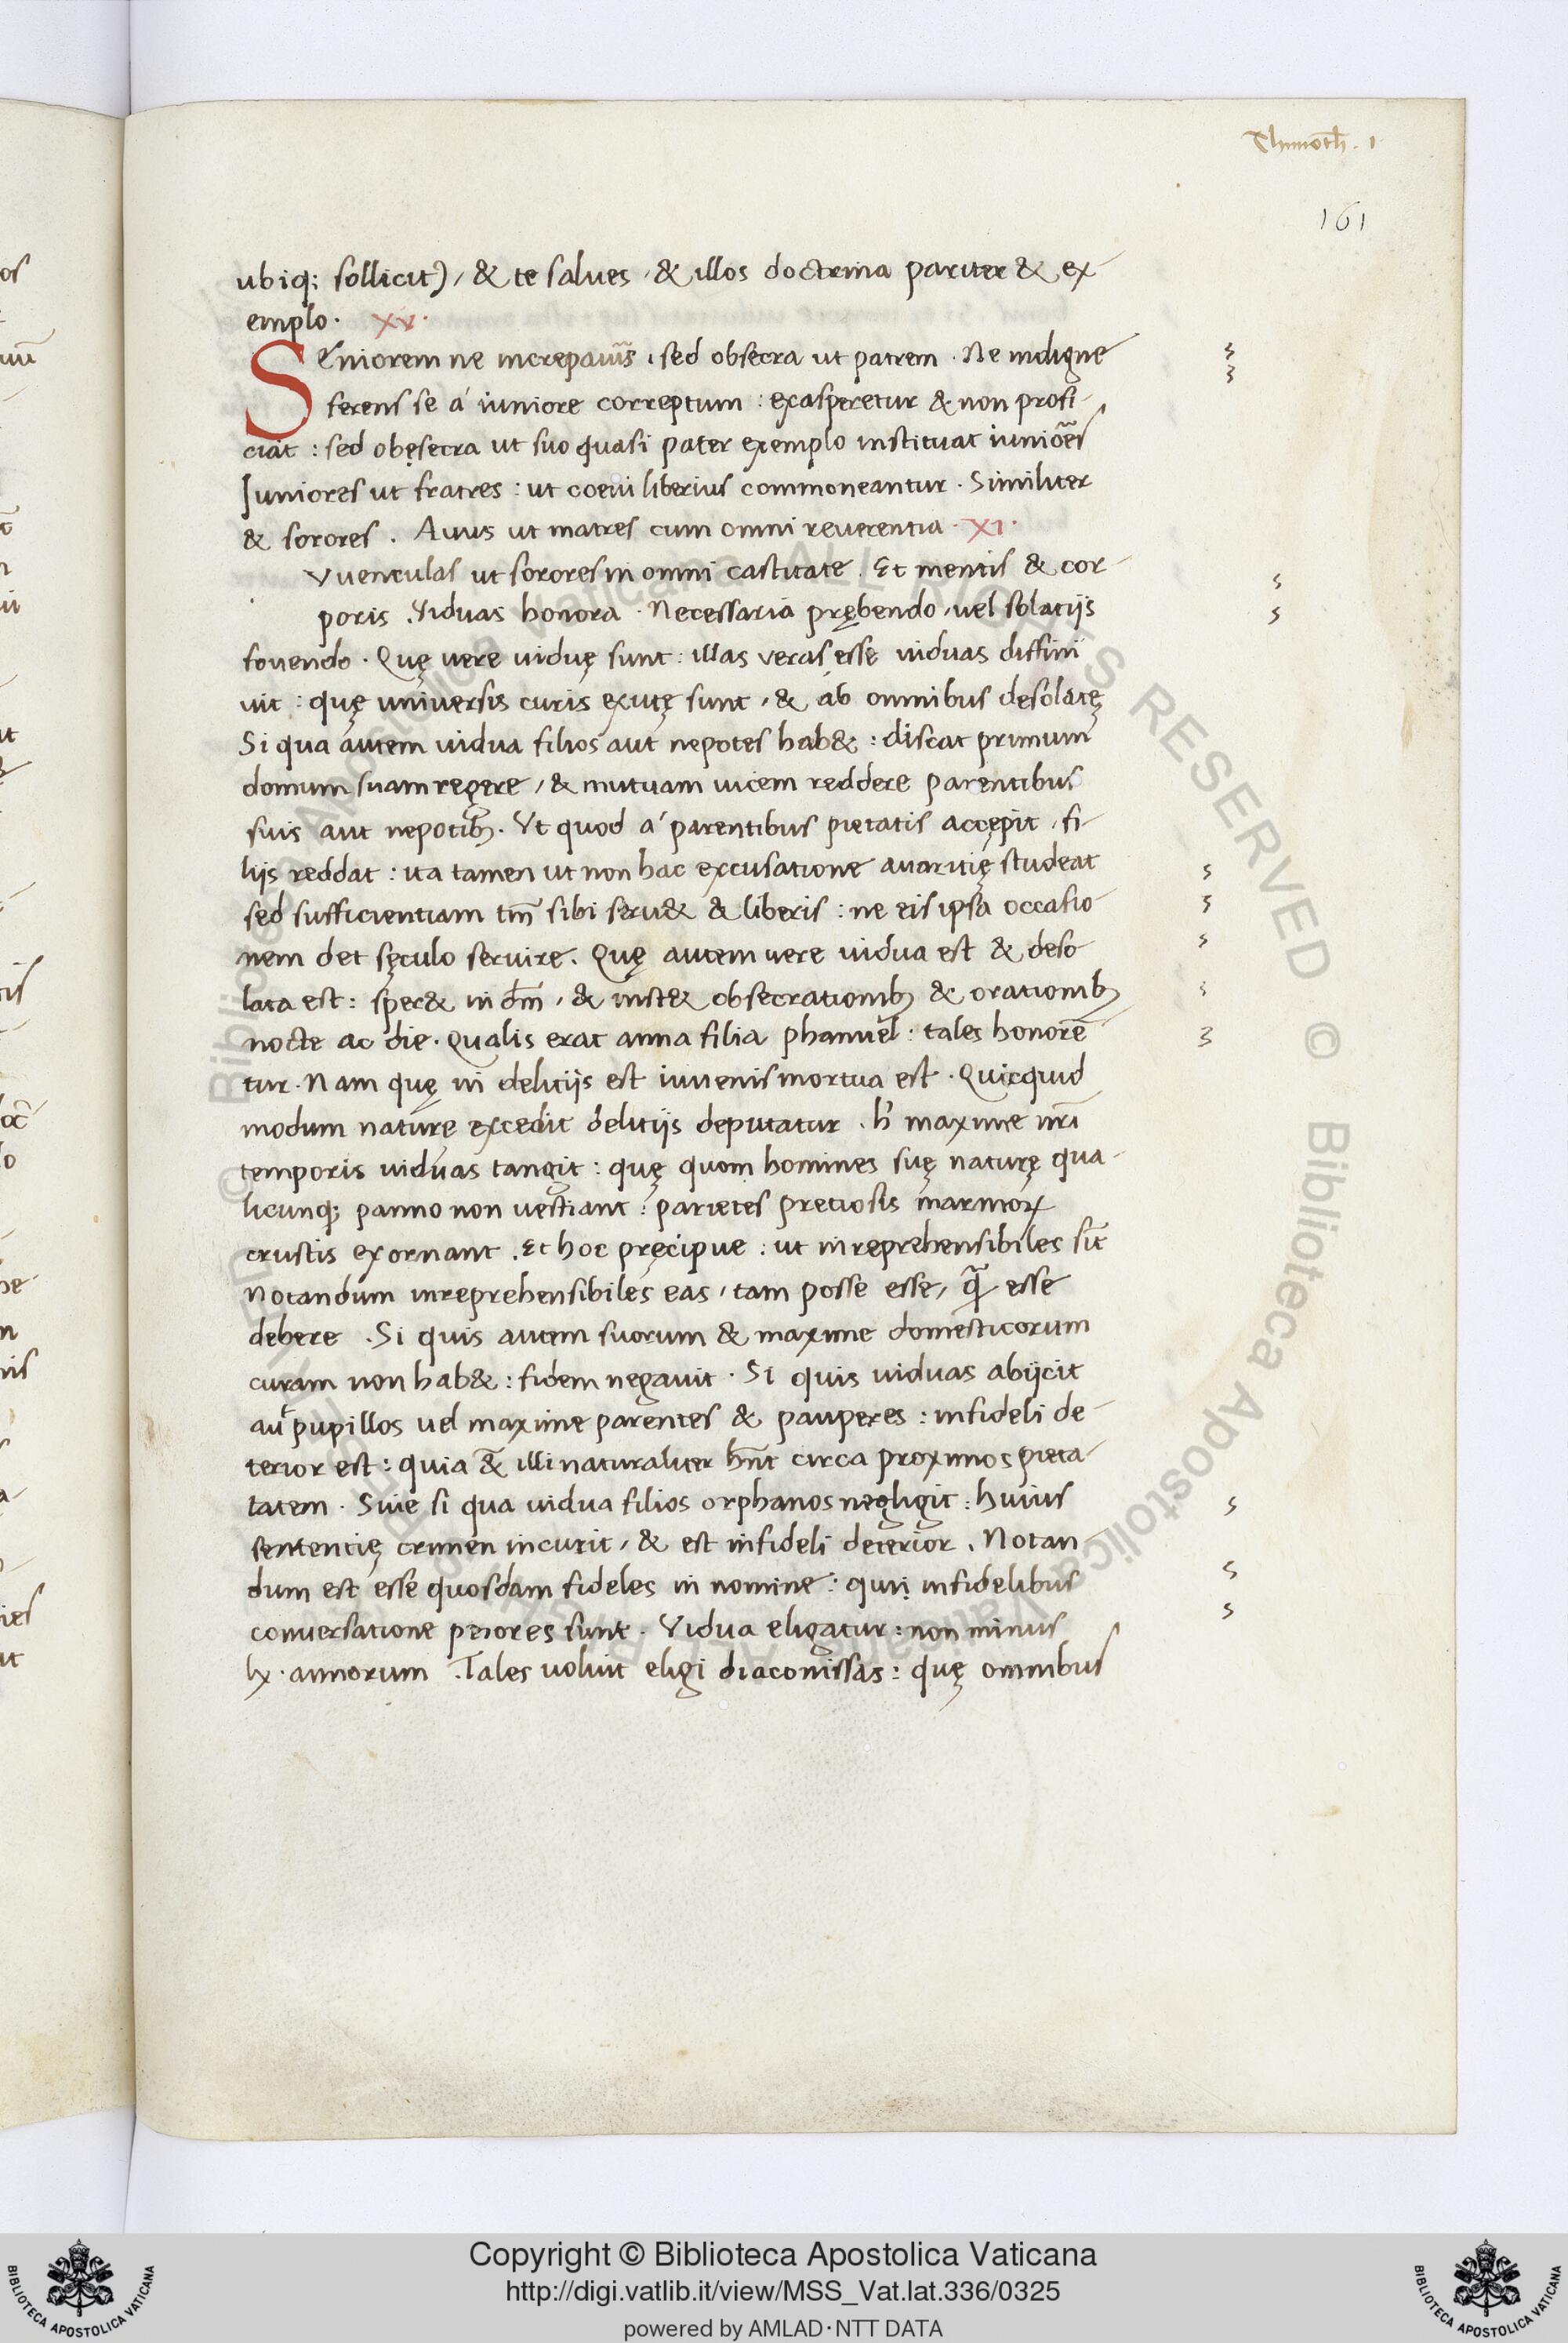 Thimoth. 1
161
ubiq; sollicit), & te salues, & illos doctrina pariter & ex-
emplo. XV.
Seniorem ne increpaueris, sed obsecra ut patrem. Ne indigne
ferens se á iuniore correptum: exasperetur & non profi-
ciat: sed obęsecra ut suo quasi pater exemplo instituat iuniores
Juniores ut fratres: ut coeui liberius commoneantur. Similiter
& sorores. Anus ut matres cum omni reuerentia. XI.
Vuenculas ut sorores in omni castitate. Et mentis & cor-
poris. Viduas honora. Necessaria prębendo, uel solatijs
fouendo. Quę uere viduę sunt: illas veras esse viduas diffini
uit: quę uniuersis curis exutę sunt, & ab omnibus desolatę
Si qua autem uidua filios aut nepotes hab&: discat primum
domum suam regere, & mutuam uicem reddere parentibus
suis aut nepotib3. Vt quod á parentibus pietatis accepit, fi-
lijs reddat: ita tamen ut non hac excusatione auaritię studeat
sed sufficientiam tm̄ sibi seru& & liberis: ne eis ipsa occasio-
nem det sęculo seruire. Quę autem uere uidua est & deso-
lata est: sper& in dm̄, & inst& obsecrationib3 & orationib3
nocte ac die. Qualis erat anna filia phanuel: tales honorē
tur. Nam quę in delitijs est iuuenis mortua est. Quicquid
modum naturę excedit delitijs deputatur. h' maxime nr̄i
temporis uiduas tangit: quę quom homines suę naturę qua-
licunq; panno non uestiant: parietes pretiosis marmoꝝ
crustis exornant. Et hoc pręcipue: ut inreprehensibiles sīt
Notandum inreprehensibiles eas, tam posse esse, q̄ esse
debere. Si quis autem suorum & maxime domesticorum
curam non hab&: fidem negauit. Si quis uiduas abijcit
aut pupillos uel maxime parentes & pauperes: infideli de-
terior est: quia &̄ illi naturaliter hn̄t circa proximos pieta-
tatem. Siue si qua uidua filios orphanos negligit: huius
sententię crimen incurit, & est infideli deterior. Notan
dum est esse quosdam fideles in nomine: quiị infidelibus
conuersatione peiores sunt. Vidua eligatur: non minus
lx. annorum. Tales uoluit eligi diaconissas: quę omnibus
Copyright © Biblioteca Apostolica Vaticana
http://digi.vatlib.it/view/MSS_Vat.lat.336/0325
powered by AMLAD·NTT DATA